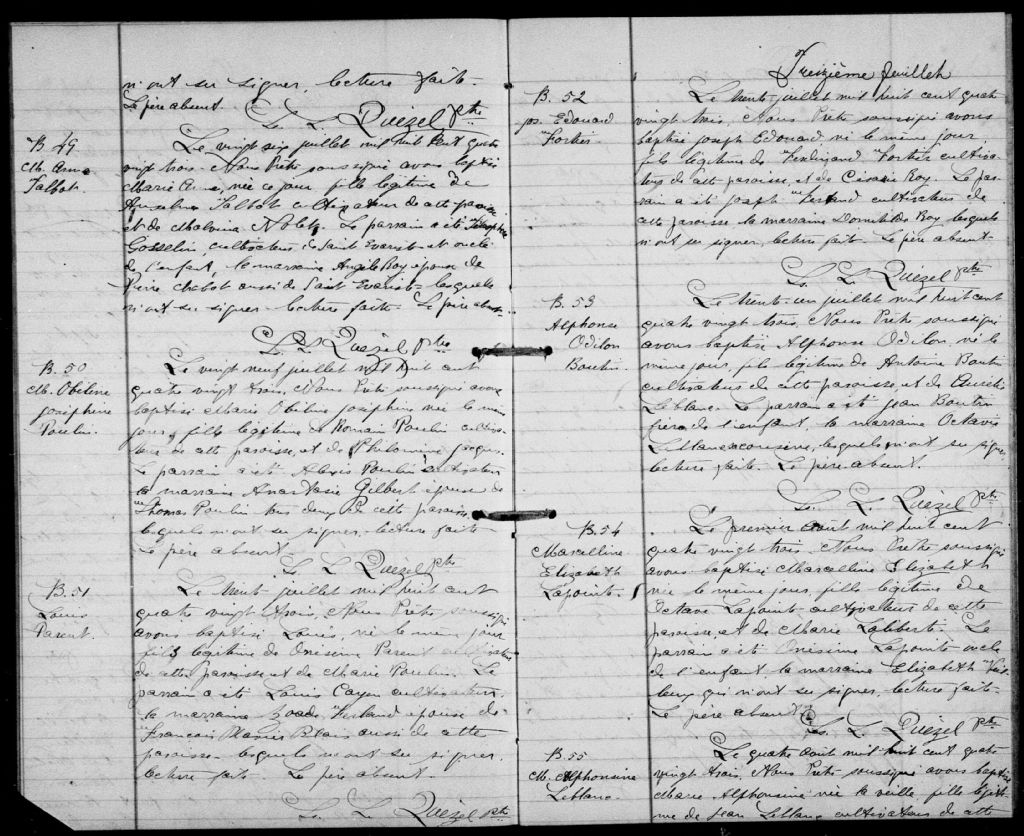 n'ont su signer, lecture faite.
Le père absent.
L. Quézel Ptre
B. 49
M. Anna
Talbot.
Le vingt six juillet mil huit cent quatre
vingt trois. Nous Prêtre soussigné avons baptisé
Marie Anna, née ce jour fille légitime de
Anselme Talbot cultivateur de cette paroisse
et de Malvina Nolet. Le parrain a été
Gosselin, cultivateur de Saint Evariste et oncle
de l'enfant, la marraine Angèle Roy épouse de
Chabot aussi de Saint Evariste lesquels
n'ont su signer. lecture faite. Le père absent.
L. Quézel Ptre
B. 50
M. Obéline
Joséphine
Poulin.
Le vingt neuf juillet mil huit cent
quatre vingt trois, Nous Prêtre soussigné avons
baptisé Marie Obéline Joséphine née le même
jour, fille légitime de Romain Poulin cultiva-
teur de cette paroisse, et de Philomène
Le parrain a été Alexis Poulin cultivateur
la marraine Anastasie Gilbert épouse de
Thomas Poulin tous deux de cette paroisse
lesquels n'ont su signer. lecture faite
Le père absent.
L. Quézel Ptre
B. 51
Louis
Parent.
Le trente juillet mil huit cent
quatre vingt trois, Nous Prêtre soussigné
avons baptisé Louis, né le même jour
fils légitime de Onésime Parent cultivateur
de cette paroisse et de Marie Poulin. Le
parrain a été Louis cultivateur,
la marraine Ferland épouse de
François aussi de cette
paroisse lesquels n'ont su signer,
lecture faite. Le père absent.
L. Quézel Ptre
Treizième feuillet
B. 52
Jos. Edouard
Fortier
Le trente juillet mil huit cent quatre
vingt trois, Nous Prêtre soussigné avons
baptisé Joseph Edouard né le même jour
fils légitime de Ferdinand Fortier cultiva-
teur de cette paroisse et de Césarie Roy. Le par-
rain a été Joseph Ferland cultivateur de
cette paroisse la marraine Domitilde Roy lesquels
n'ont su signer, lecture faite. Le père absent.
L. Quézel Ptre
B. 53
Alphonse
Odilon
Boutin.
Le trente-un juillet mil huit cent
quatre vingt trois, Nous Prêtre soussigné
avons baptisé Alphonse Odilon, né le
même jour, fils légitime de Antoine Boutin
cultivateur de cette paroisse, et de
Leblanc. Le parrain a été Jean Boutin
frère de l'enfant, la marraine Octavie
Leblanc cousine, lesquels n'ont su signer,
lecture faite. Le père absent.
L. Quézel Ptre
B. 54
Marcelline
Elizabeth
Lapointe.
Le premier août mil huit cent
quatre vingt trois. Nous Prêtre soussigné
avons baptisé Marcelline Elizabeth
née le même jour, fille légitime de
Octave Lapointe cultivateur de cette
paroisse, et de Marie Laliberté. Le
parrain a été Onésime Lapointe oncle
de l'enfant, la marraine Elizabeth
qui n'ont su signer, lecture faite.
Le père absent.
L. Quézel Ptre
B. 55
M. Alphonsine
Leblanc.
Le quatre août mil huit cent quatre
vingt trois, Nous Prêtre soussigné avons baptisé
Marie Alphonsine née la veille fille légiti-
me de Jean Leblanc cultivateur de cette